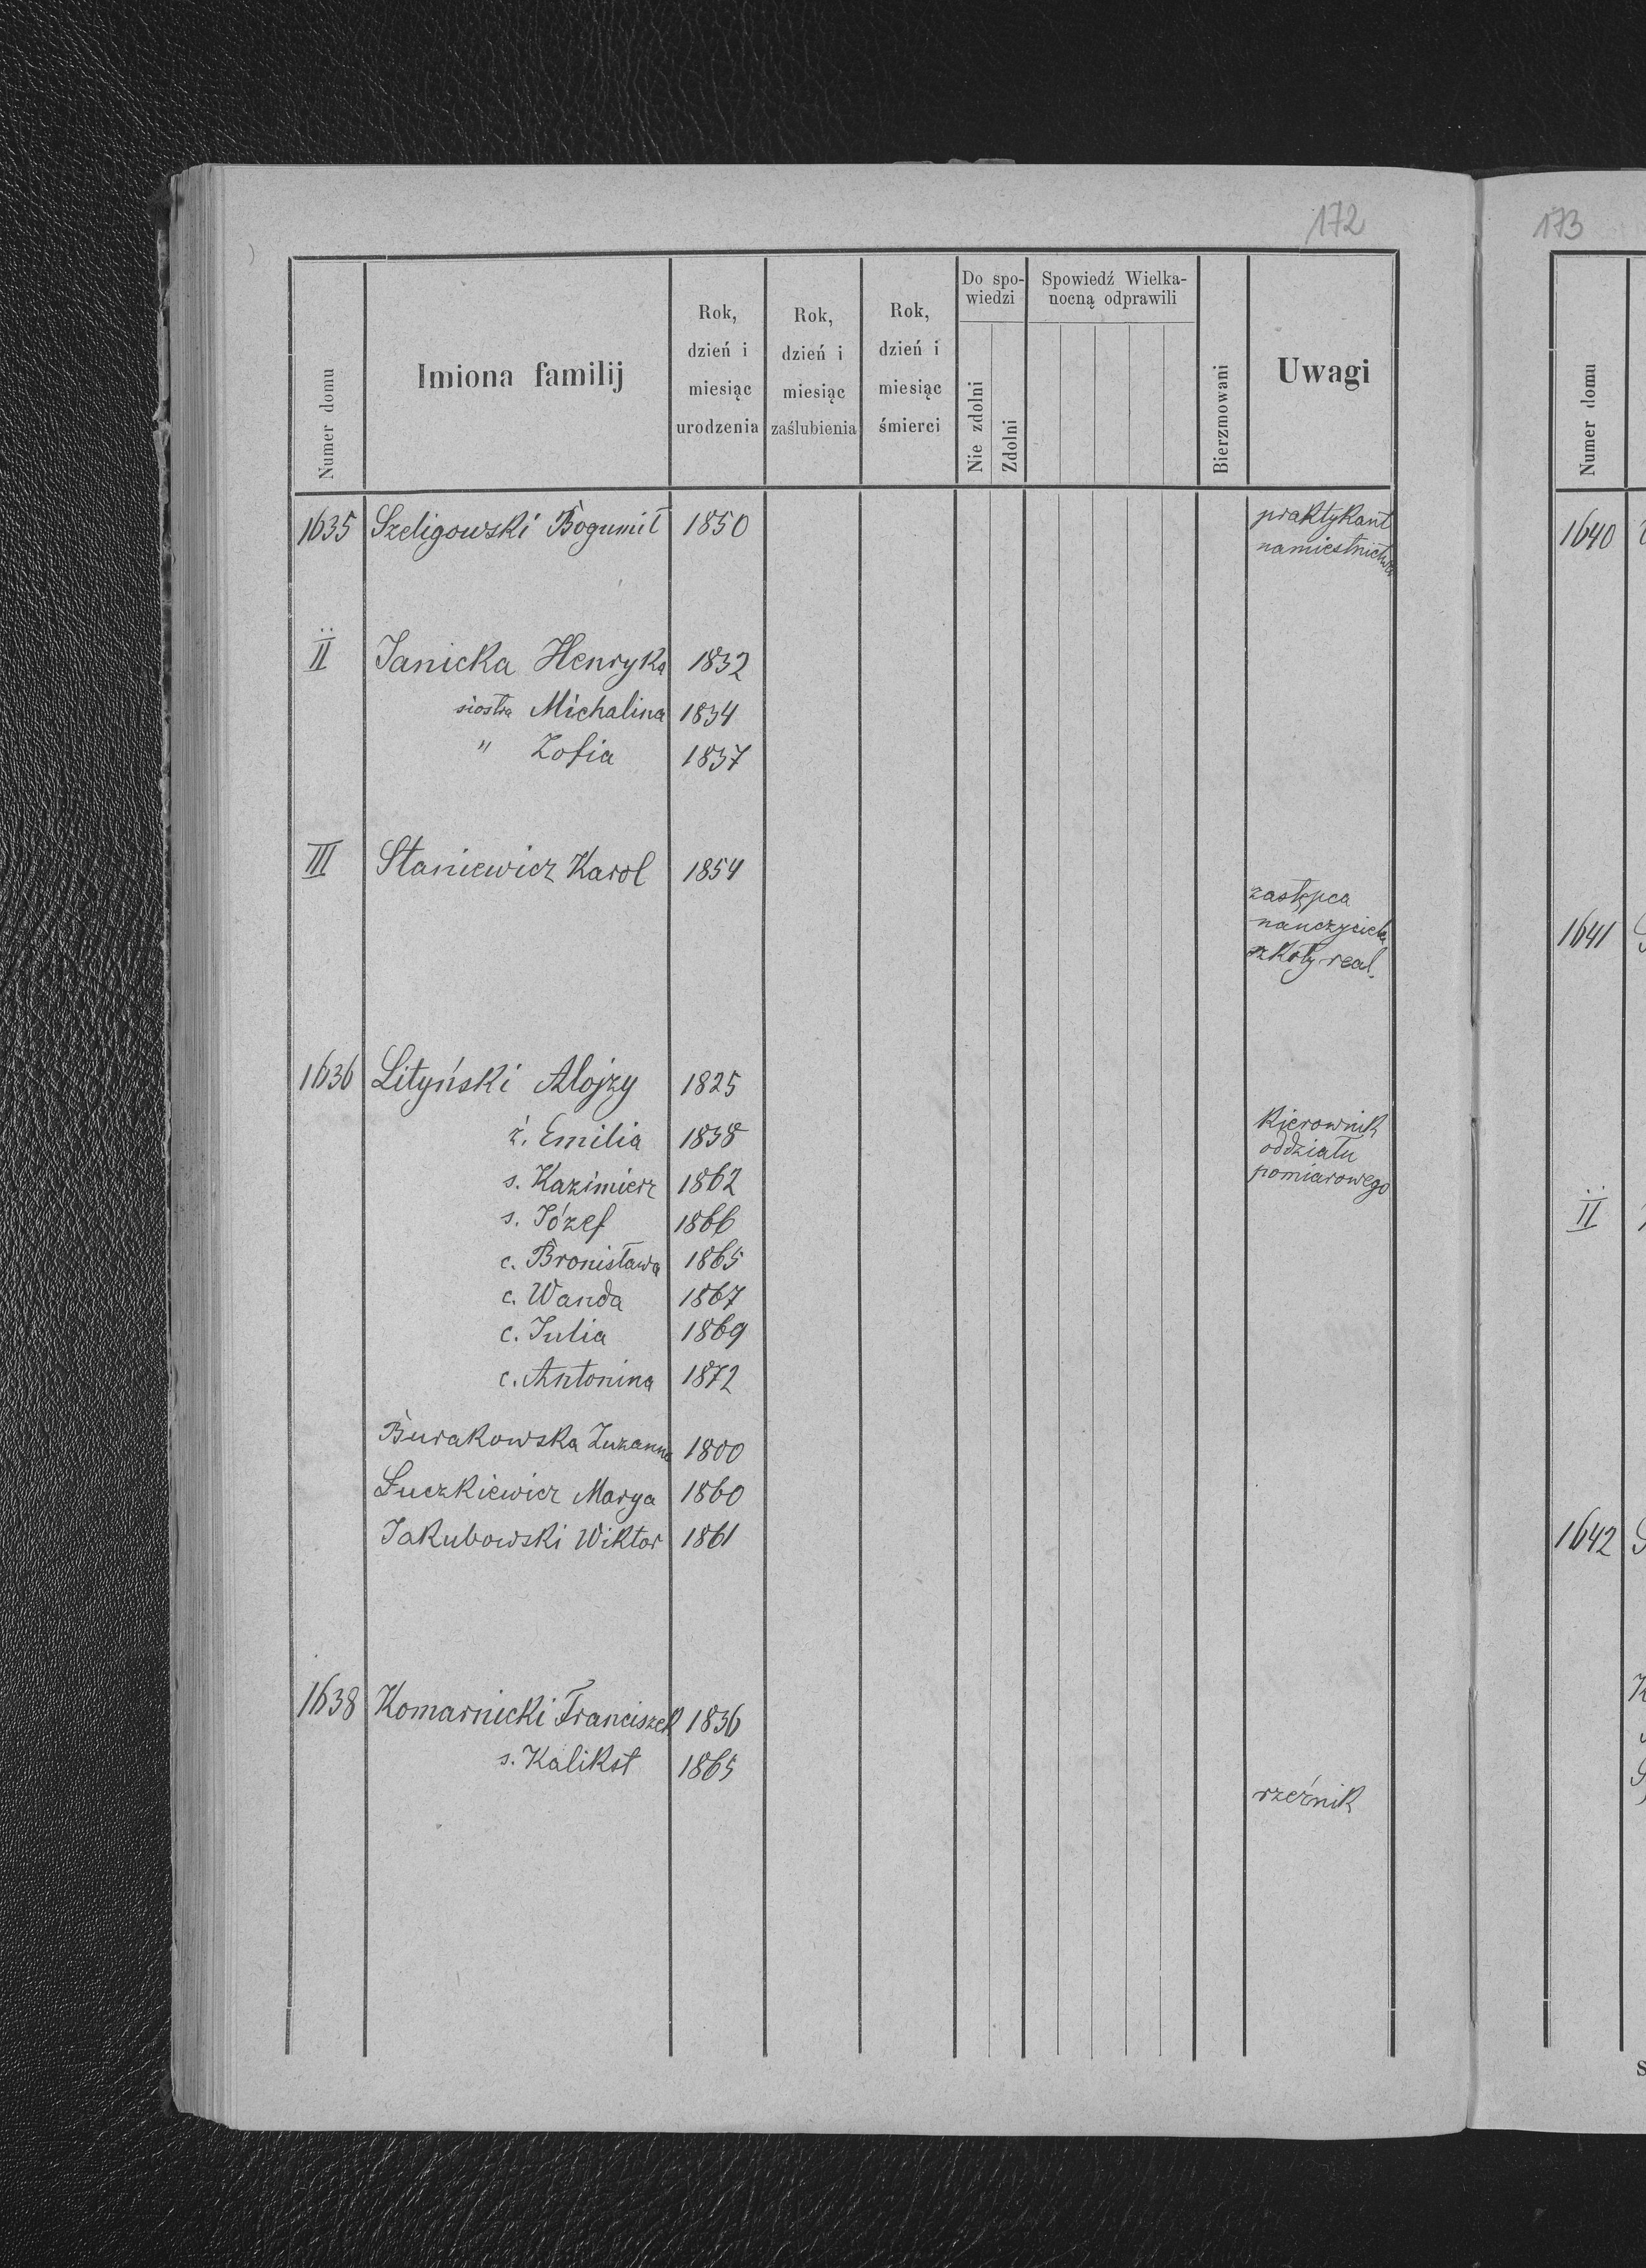 172
173
Numer domu
Imiona familij
Rok, dzień i miesiąc urodzenia
Rok, dzień i miesiąc zaślubienia
Rok, dzień i miesiąc śmierci
Do spo-
wiedzi
Nie zdolni
Zdolni
Spowiedź Wielka-
nocną odprawili
Bierzmowani
Uwagi
Numer domu
1635 Szeligowski Bogumił 1850 praktykant
namiestnictwa
II Janicka Henryka 1832
siostra Michalina 1834
" Zofia 1837
III Staniewicz Karol 1854
zastępca
nauczyciela
szkoły real.
1636 Lityński Alojzy 1825
ż. Emilia 1838 Kierownik
oddziału
s. Kazimierz 1862 pomiarowego
s. Józef 1866
c. Bronisława 1865
c. Wanda 1867
c. Julia 1869
c. Antonina 1872
Burakowska Zuzanna 1800
Łuczkiewicz Marya 1860
Jakubowski Wiktor 1861
1638 Komarnicki Franciszek 1836
s. Kalikst 1865
rzeźnik
1640
1641
II
1642